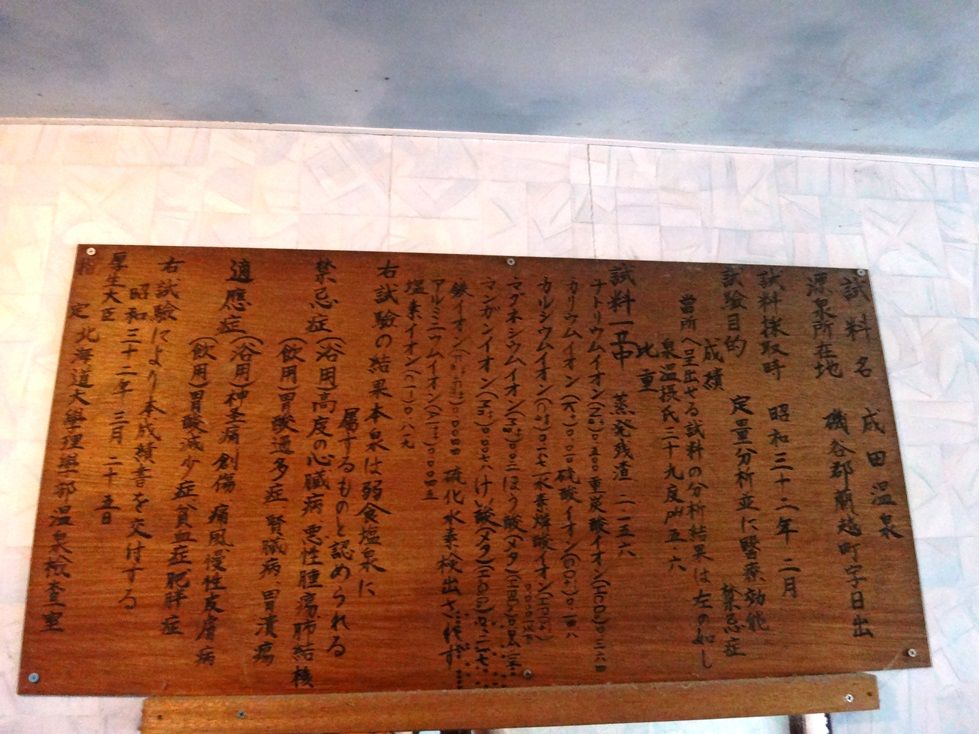 試料名 成田温泉
源泉所在地 磯谷郡蘭越町字日出
試料採取時 昭和三十二年 二月
試驗目的 定量分析並に醫療効能
禁忌症
成績
當所へ呈出せる試料の分析結果は左の如し
泉温摂氏三十九度 五・六
比重
試料一 中 蒸発残渣 二・一五六
ナトリウムイオン 重炭酸イオン
カリウムイオン 硫酸イオン
カルシウムイオン 水素燐酸イオン
マグネシウムイオン ほう酸(メタ)
マンガンイオン けい酸(メタ)
鉄イオン 硫化水素 検出されず
アルミニウムイオン
塩素イオン
右試驗の結果本泉は弱食塩泉に
属するものと認められる
禁忌症(浴用)高度の心臓病 悪性腫瘍 肺結核
(飲用)胃酸過多症 腎臓病 胃潰瘍
適應症(浴用)神圣痛 創傷 痛風 慢性皮膚病
(飲用)胃酸減少症 貧血症 肥胖症
右試驗により本成績書を交付する
昭和三十二年 三月 二十五日
厚生大臣
指定 北海道大學理學部温泉検査室